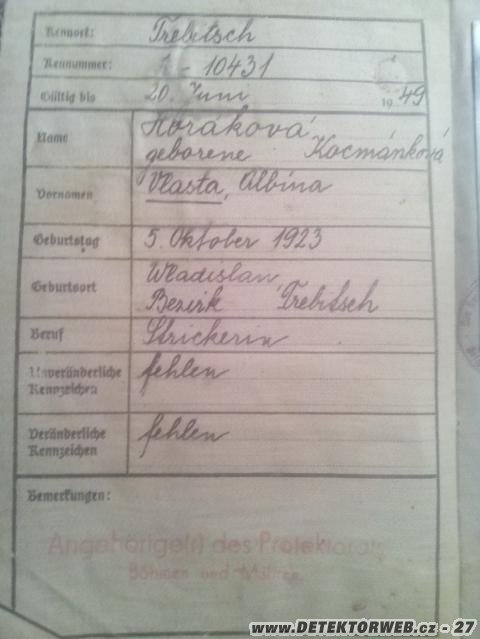 Kennort: Trebitsch
Kennummer: 1 - 10431
Gültig bis 20. Juni 1949
Name Horáková
geborene Kocmánková
Vornamen Vlasta, Albína
Geburtstag 5. Oktober 1923
Geburtsort Wladislau,
Bezirk Trebitsch
Beruf Strickerin
Unveränderliche Kennzeichen fehlen
Veränderliche Kennzeichen fehlen
Bemerkungen:
Angehörige(r) des Protektorats
Böhmen und Mähren.
www.DETEKTORWEB.cz - 27